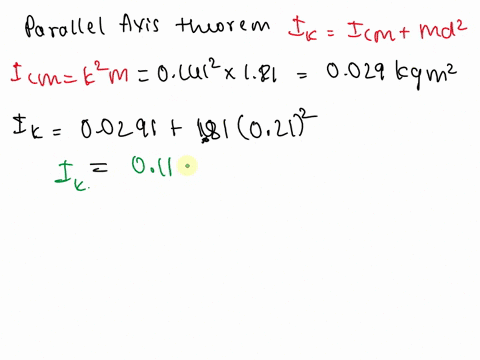 Parallel Axis theorem I_k = I_cm + md²
I_cm = k²m = 0.141² × 1.81 = 0.029 kgm²
I_k = 0.0291 + 1.81 (0.21)²
I_k = 0.11